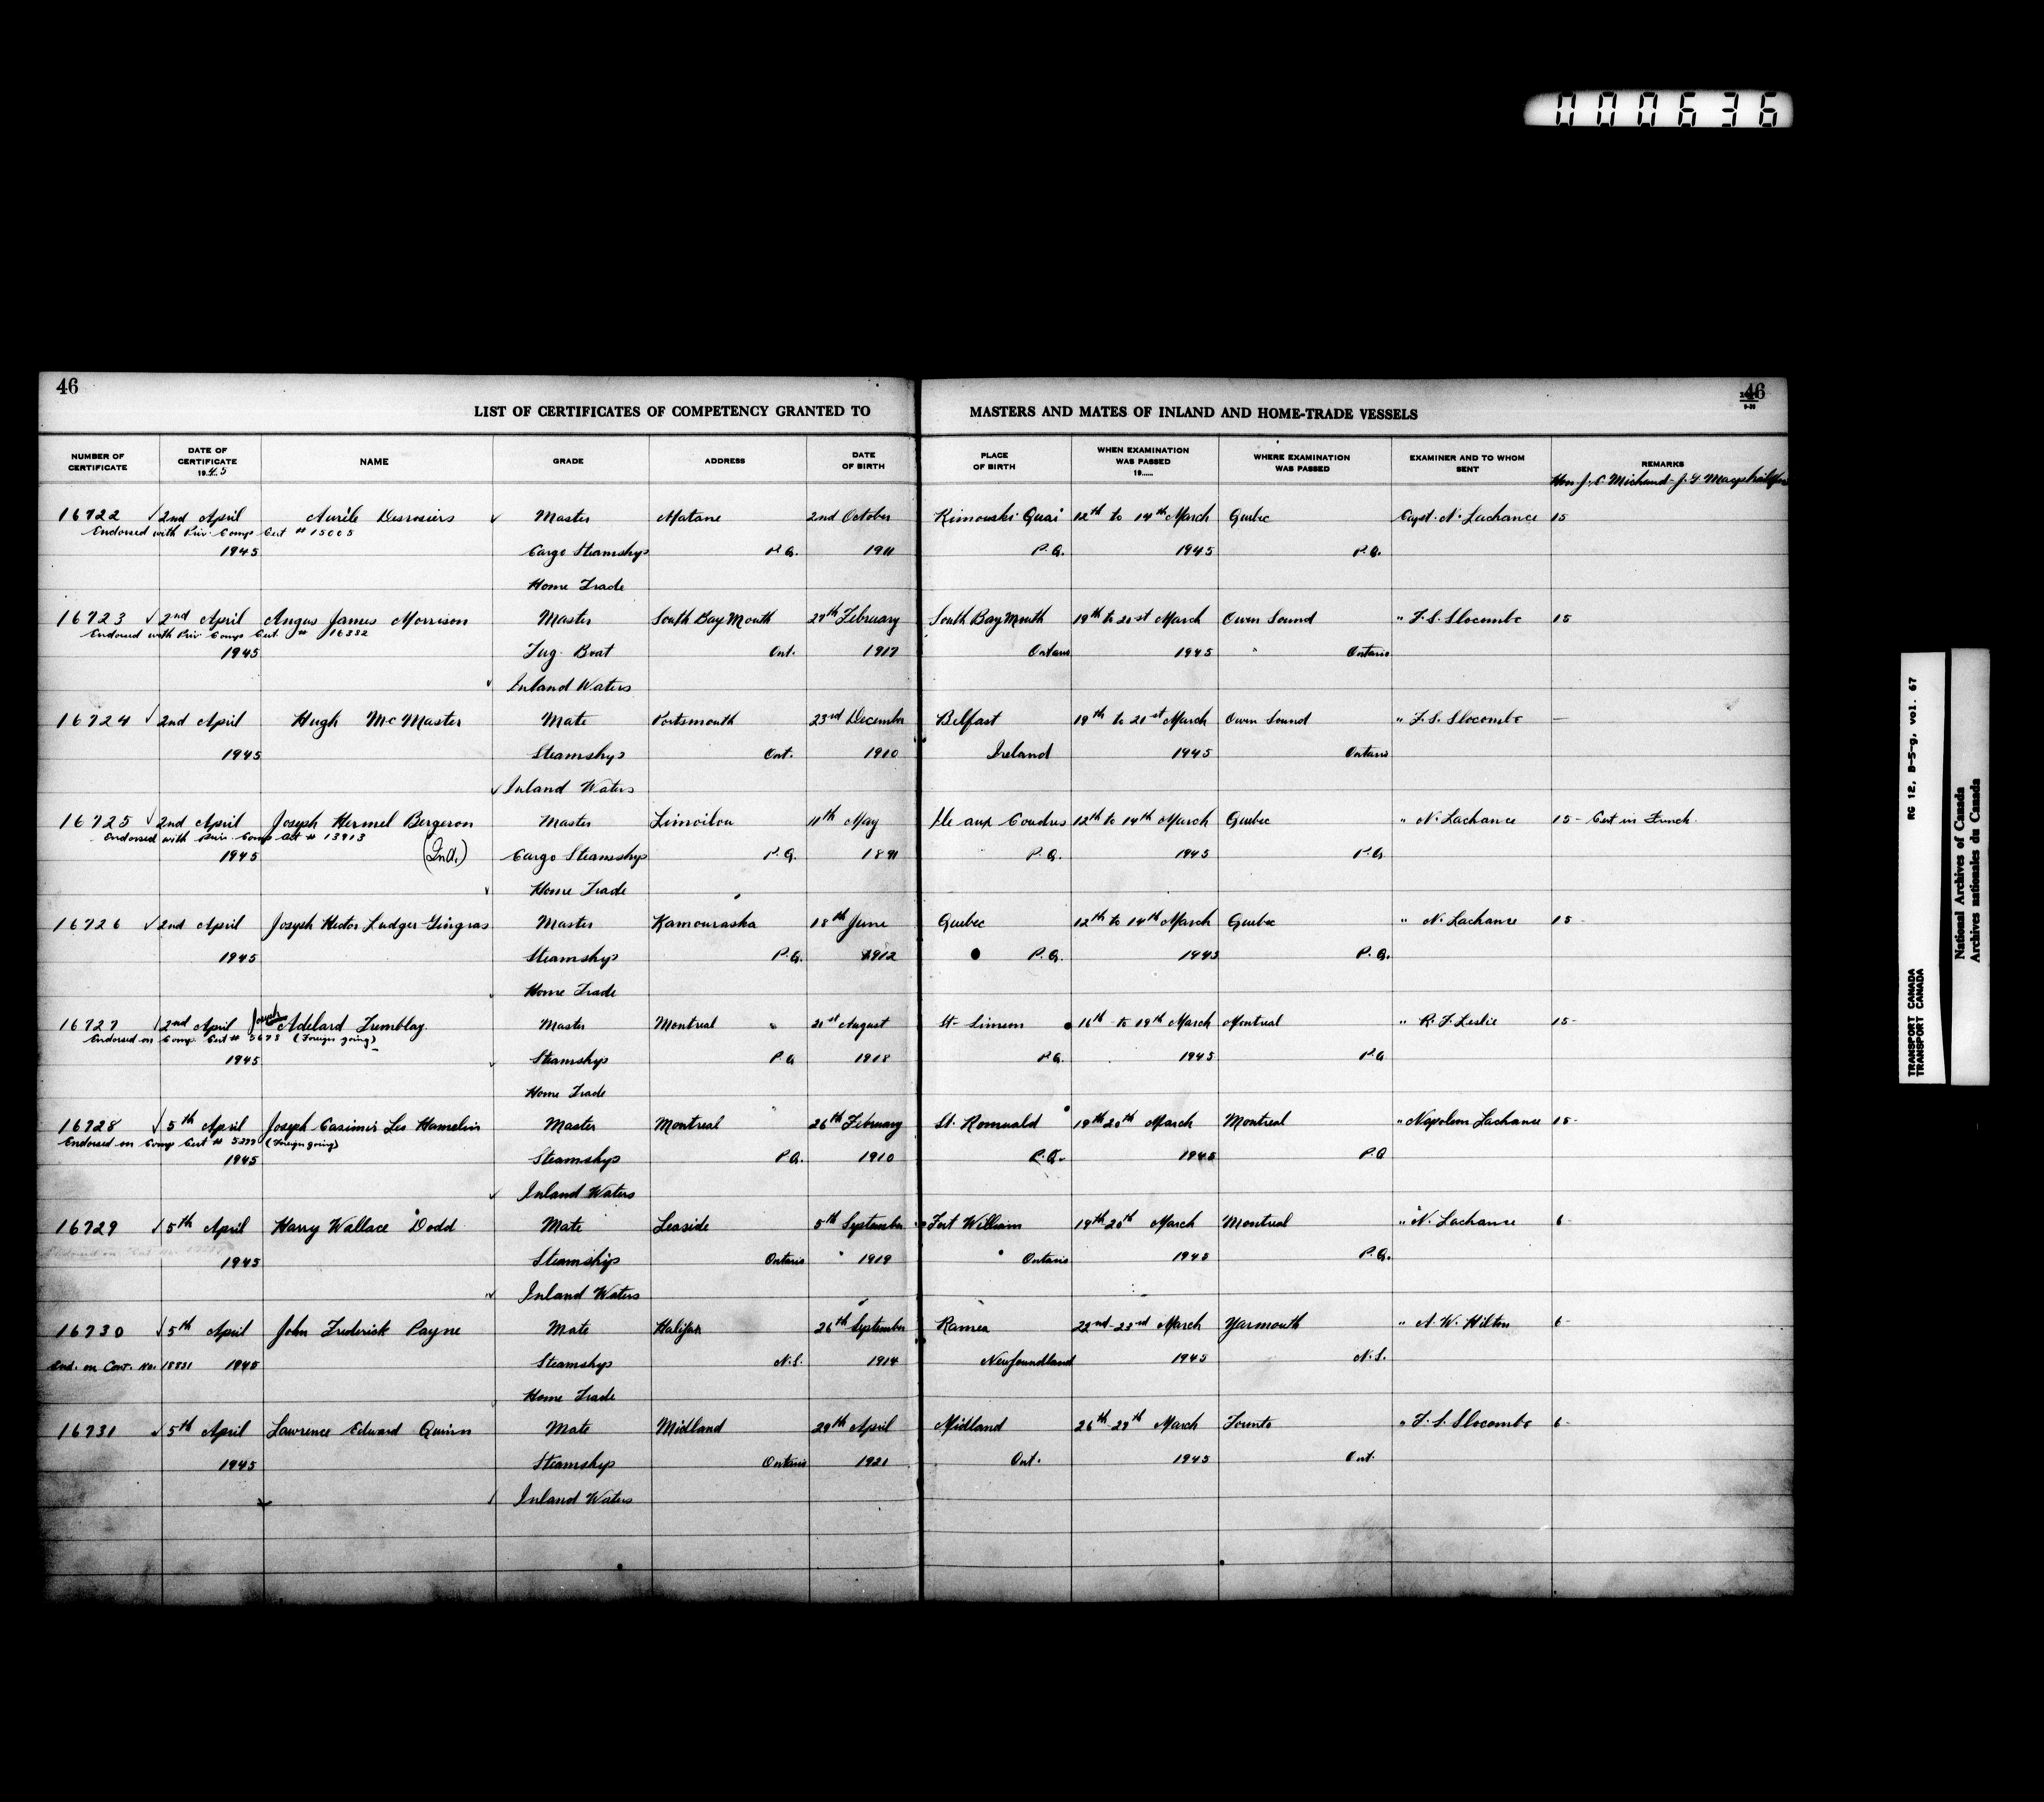 000636
46
46
LIST OF CERTIFICATES OF COMPETENCY GRANTED TO MASTERS AND MATES OF INLAND AND HOME-TRADE VESSELS
NUMBER OF CERTIFICATE DATE OF CERTIFICATE 1945 NAME GRADE ADDRESS DATE OF BIRTH PLACE OF BIRTH WHEN EXAMINATION WAS PASSED 19...... WHERE EXAMINATION WAS PASSED EXAMINER AND TO WHOM SENT REMARKS
Hon. J. E. Michaud - J. G.
16722 2nd April Aurèle Desrosiers Master Matane 2nd October Rimouski Quai 12th to 14th March Quebec Capt. N. Lachance 15
Endorsed with Priv. Comp Cert # 15005
1945 Cargo Steamships P.Q. 1911 P.Q. 1945 P.Q.
Home Trade
16723 2nd April Angus James Morrison Master South Bay Mouth 27th February South Bay Mouth 19th to 21st March Owen Sound " F. S. Slocombe 15
Endorsed with Priv Comp Cert. # 16332
1945 Tug-Boat Ont. 1917 Ontario 1945 Ontario
Inland Waters
16724 2nd April Hugh McMaster Mate Portsmouth 23rd December Belfast 19th to 21st March Owen Sound " F. S. Slocombe —
1945 Steamships Ont. 1910 Ireland 1945 Ontario
Inland Waters
16725 2nd April Joseph Hermel Bergeron Master Limoilou 11th May Ile aux Coudres 12th to 14th March Quebec " N. Lachance 15 - Cert in French
Endorsed with Priv. Comp Cert # 13913
1945 (Ind.) Cargo Steamships P.Q. 1891 P.Q. 1945 P.Q.
Home Trade
16726 2nd April Joseph Hector Ludger Gingras Master Kamouraska 18th June Quebec 12th to 14th March Quebec " N. Lachance 15 -
1945 Steamships P.Q. 1912 P.Q. 1945 P.Q.
Home Trade
16727 2nd April Joseph Adelard Tremblay Master Montreal 21st August St-Simeon 16th to 19th March Montreal " R. F. Leslie 15 -
Endorsed on Comp. Cert # 5678 (Foreign going)
1945 Steamships P.Q 1918 P.Q. 1945 P.Q
Home Trade
16728 5th April Joseph Casimir Leo Hamelin Master Montreal 26th February St. Romuald 19th 20th March Montreal " Napoleon Lachance 15 -
Endorsed on Comp Cert # (Foreign going)
1945 Steamships P.Q. 1910 P.Q. 1945 P.Q
Inland Waters
16729 5th April Harry Wallace Dodd Mate Leaside 5th September Fort William 19th 20th March Montreal " N. Lachance 6 -
Endorsed on
1945 Steamships Ontario 1919 Ontario 1945 P.Q.
Inland Waters
16730 5th April John Frederick Payne Mate Halifax 26th September Ramea 22nd-23rd March Yarmouth " A. W. Hilton 6 -
End. on Cert. No. 18831 1945 Steamships N.S. 1914 Newfoundland 1945 N.S.
Home Trade
16731 5th April Lawrence Edward Quinn Mate Midland 29th April Midland 26th-27th March Toronto " F. S. Slocombe 6 -
1945 Steamships Ontario 1921 Ont. 1945 Ont.
Inland Waters
RG 12, B-5-g, vol. 67
TRANSPORT CANADA
TRANSPORT CANADA
National Archives of Canada
Archives nationales du Canada